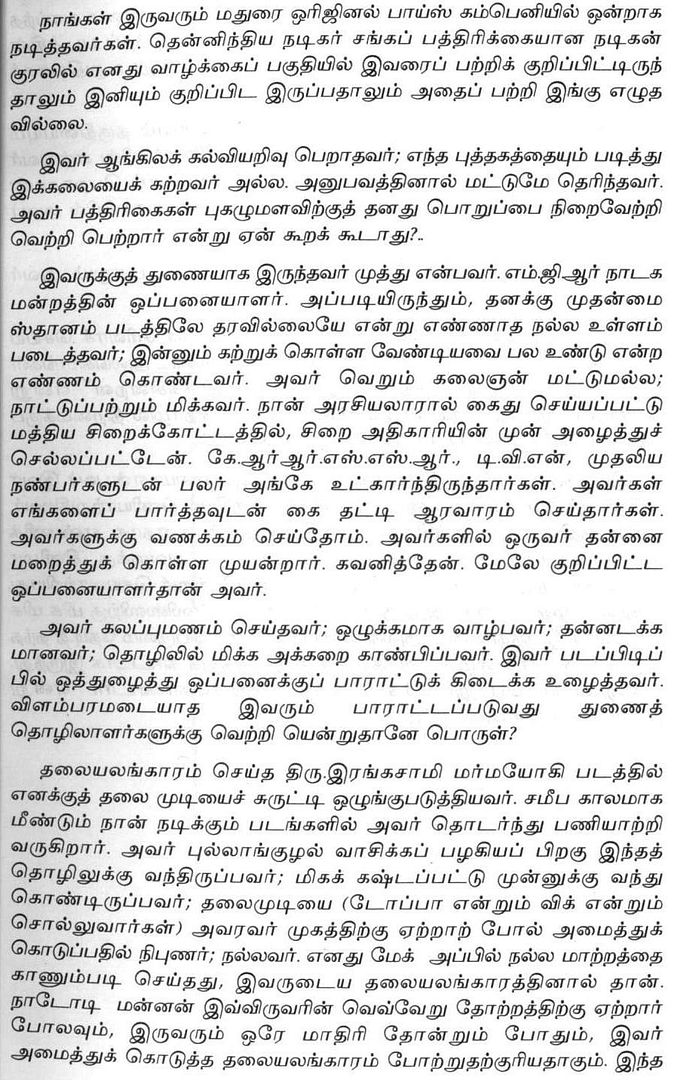 நாங்கள் இருவரும் மதுரை ஒரிஜினல் பாய்ஸ் கம்பெனியில் ஒன்றாக
நடித்தவர்கள். தென்னிந்திய நடிகர் சங்கப் பத்திரிக்கையான நடிகன்
குரலில் எனது வாழ்க்கைப் பகுதியில் இவரைப் பற்றிக் குறிப்பிட்டிருந்
தாலும் இனியும் குறிப்பிட இருப்பதாலும் அதைப் பற்றி இங்கு எழுத
வில்லை.
இவர் ஆங்கிலக் கல்வியறிவு பெறாதவர்; எந்த புத்தகத்தையும் படித்து
இக்கலையைக் கற்றவர் அல்ல. அனுபவத்தினால் மட்டுமே தெரிந்தவர்.
அவர் பத்திரிகைகள் புகழுமளவிற்குத் தனது பொறுப்பை நிறைவேற்றி
வெற்றி பெற்றார் என்று ஏன் கூறக் கூடாது?..
இவருக்குத் துணையாக இருந்தவர் முத்து என்பவர். எம்.ஜி.ஆர் நாடக
மன்றத்தின் ஒப்பனையாளர். அப்படியிருந்தும், தனக்கு முதன்மை
ஸ்தானம் படத்திலே தரவில்லையே என்று எண்ணாத நல்ல உள்ளம்
படைத்தவர்; இன்னும் கற்றுக் கொள்ள வேண்டியவை பல உண்டு என்ற
எண்ணம் கொண்டவர். அவர் வெறும் கலைஞன் மட்டுமல்ல;
நாட்டுப்பற்றும் மிக்கவர். நான் அரசியலாரால் கைது செய்யப்பட்டு
மத்திய சிறைக்கோட்டத்தில், சிறை அதிகாரியின் முன் அழைத்துச்
செல்லப்பட்டேன். கே.ஆர்ஆர்.எஸ்.எஸ்.ஆர்., டி.வி.என், முதலிய
நண்பர்களுடன் பலர் அங்கே உட்கார்ந்திருந்தார்கள். அவர்கள்
எங்களைப் பார்த்தவுடன் கை தட்டி ஆரவாரம் செய்தார்கள்.
அவர்களுக்கு வணக்கம் செய்தோம். அவர்களில் ஒருவர் தன்னை
மறைத்துக் கொள்ள முயன்றார். கவனித்தேன். மேலே குறிப்பிட்ட
ஒப்பனையாளர்தான் அவர்.
அவர் கலப்புமணம் செய்தவர்; ஒழுக்கமாக வாழ்பவர்; தன்னடக்க
மானவர்; தொழிலில் மிக்க அக்கறை காண்பிப்பவர். இவர் படப்பிடிப்
பில் ஒத்துழைத்து ஒப்பனைக்குப் பாராட்டுக் கிடைக்க உழைத்தவர்.
விளம்பரமடையாத இவரும் பாராட்டப்படுவது துணைத்
தொழிலாளர்களுக்கு வெற்றி யென்றுதானே பொருள்?
தலையலங்காரம் செய்த திரு.இரங்கசாமி மர்மயோகி படத்தில்
எனக்குத் தலை முடியைச் சுருட்டி ஒழுங்குபடுத்தியவர். சமீப காலமாக
மீண்டும் நான் நடிக்கும் படங்களில் அவர் தொடர்ந்து பணியாற்றி
வருகிறார். அவர் புல்லாங்குழல் வாசிக்கப் பழகியப் பிறகு இந்தத்
தொழிலுக்கு வந்திருப்பவர்; மிகக் கஷ்டப்பட்டு முன்னுக்கு வந்து
கொண்டிருப்பவர்; தலைமுடியை (டோப்பா என்றும் விக் என்றும்
சொல்லுவார்கள்) அவரவர் முகத்திற்கு ஏற்றாற் போல் அமைத்துக்
கொடுப்பதில் நிபுணர்; நல்லவர். எனது மேக் அப்பில் நல்ல மாற்றத்தை
காணும்படி செய்தது, இவருடைய தலையலங்காரத்தினால் தான்.
நாடோடி மன்னன் இவ்விருவரின் வெவ்வேறு தோற்றத்திற்கு ஏற்றார்
போலவும், இருவரும் ஒரே மாதிரி தோன்றும் போதும், இவர்
அமைத்துக் கொடுத்த தலையலங்காரம் போற்றுதற்குரியதாகும். இந்த